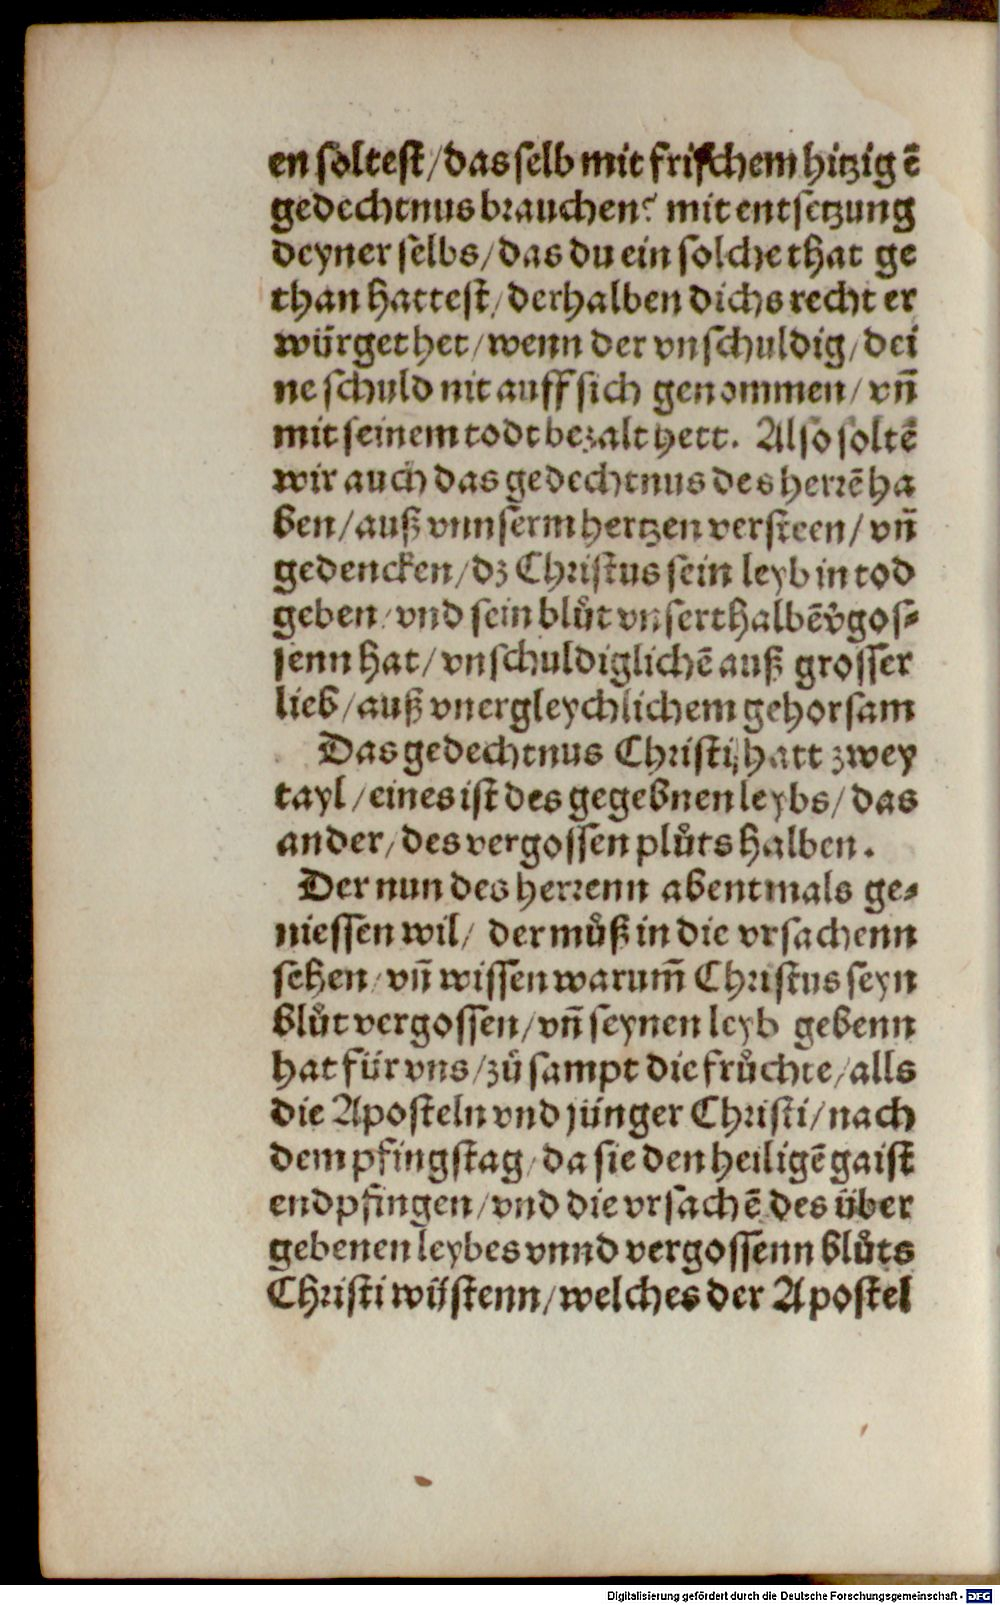 en soltest/das selb mit frischem hitzigē
gedechtnus brauchen? mit entsetzung
deyner selbs/das du ein solche that ge
than hattest/derhalben dichs recht er
würget het/wenn der vnschuldig/dei
ne schuld nit auff sich genommen/vn̄
mit seinem todt bezalt hett. Also soltē
wir auch das gedechtnus des herrē ha
ben/auß vnnserm hertzen versteen/vn̄
gedencken/dz Christus sein leyb in tod
geben/vnd sein blůt vnserthalbē v̓gos⸗
senn hat/vnschuldiglichē auß grosser
lieb/auß vnergleychlichem gehorsam
Das gedechtnus Christi/hatt zwey
tayl/eines ist des gegebnen leybs/das
ander/des vergossen plůts halben.
Der nun des herrenn abentmals ge⸗
niessen wil/ der můß in die vrsachenn
sehen/vn̄ wissen warum̄ Christus seyn
blůt vergossen/vn̄ seynen leyb gebenn
hat für vns/zů sampt die frůchte/alls
die Aposteln vnd jünger Christi/nach
dem pfingstag/da sie den heiligē gaist
endpfingen/vnd die vrsachē des über
gebenen leybes vnnd vergossenn blůts
Christi wüstenn/welches der Apostel
Digitalisierung gefördert durch die Deutsche Forschungsgemeinschaft - DFG